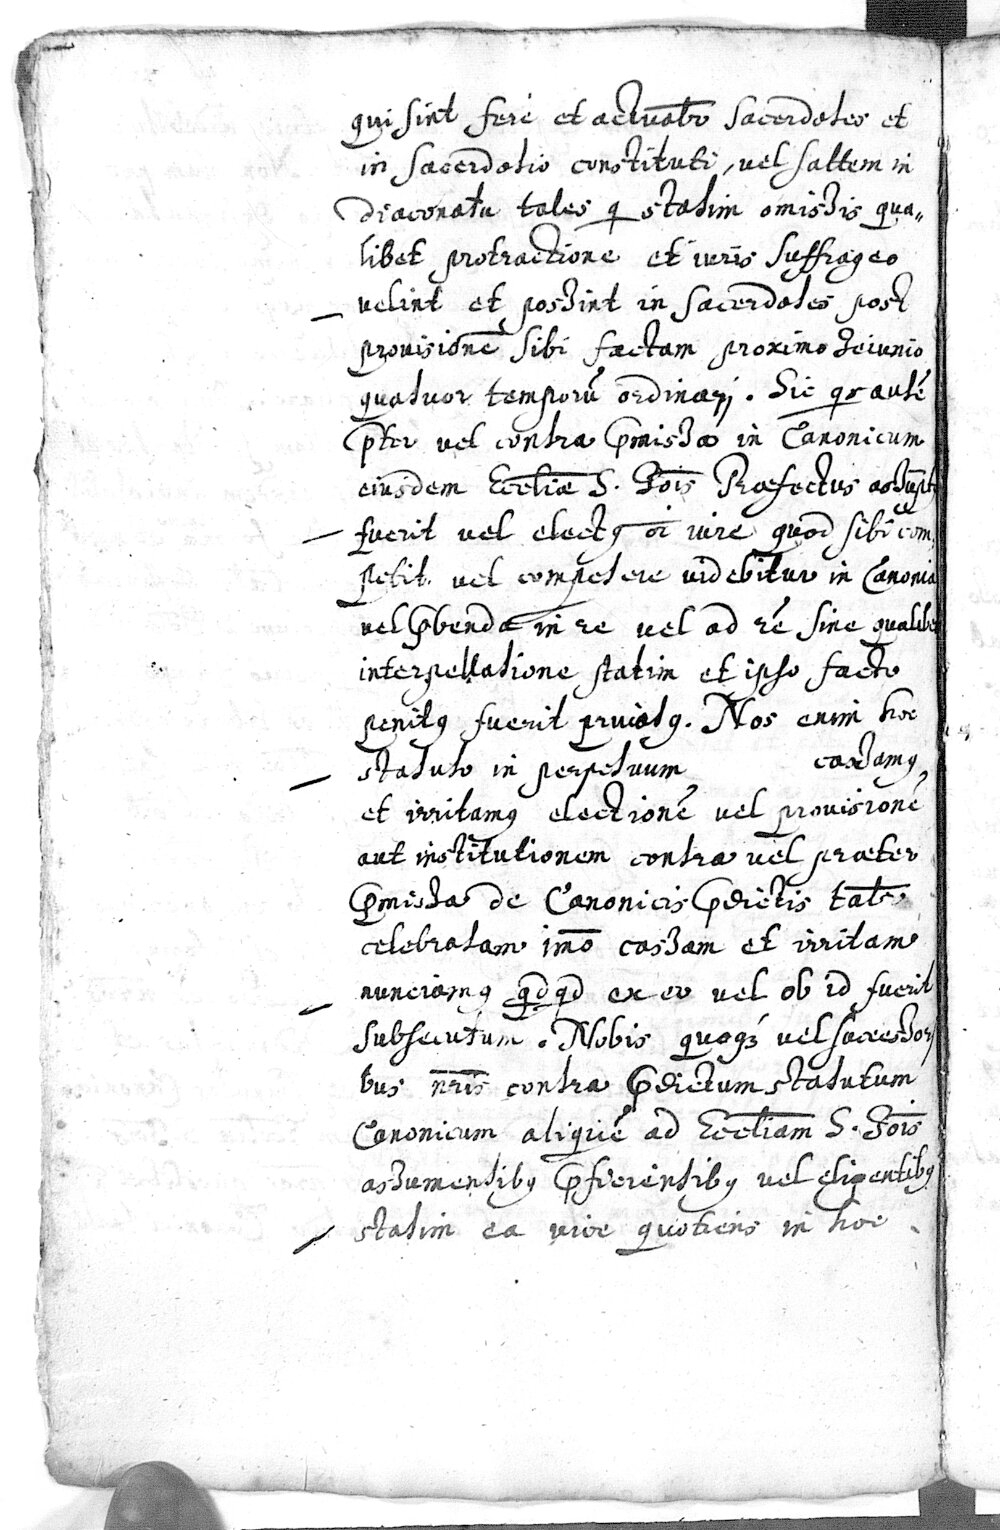 qui sint fere et actualr Sacerdotes et
in Sacerdotio constituti, vel saltem in
Diaconatu tales q statim omissis qua„
libet protractione et iuris suffrageo
velint et possint in Sacerdotes post
provisionē sibi factam proximo Jeiunio
quatuor temporū ordinarj. Sic qr autē
ꝓter vel contra ꝓmissa in Canonicum
eiusdem Eccliæ S. Jois Præfectus assūpt
fuerit vel electꝰ oi iure quod sibi com
petit vel competere videbitur in Canonia
vel ꝓbenda in re vel ad rē sine qualibet
interpellatione statim et ipso facto
penitꝰ fuerit privatꝰ. Nos enim hoc
statuto in perpetuum cassamꝰ
et irritamꝰ electionē vel provisionē
aut institutionem contra vel præter
ꝓmissa de Canonicis ꝓdictis talr
celebratam imo cassam et irritam
nunciamꝰ qdqd ex eo vel ob id fuerit
subsecutum. Nobis quoqꝫ vel successorj
bus nris contra ꝓdictum statutum
Canonicum aliquē ad Eccliam S. Jois
assumentibꝰ ꝓficientibꝰ vel eligentibꝰ
statim ea vice quotiens in hoc